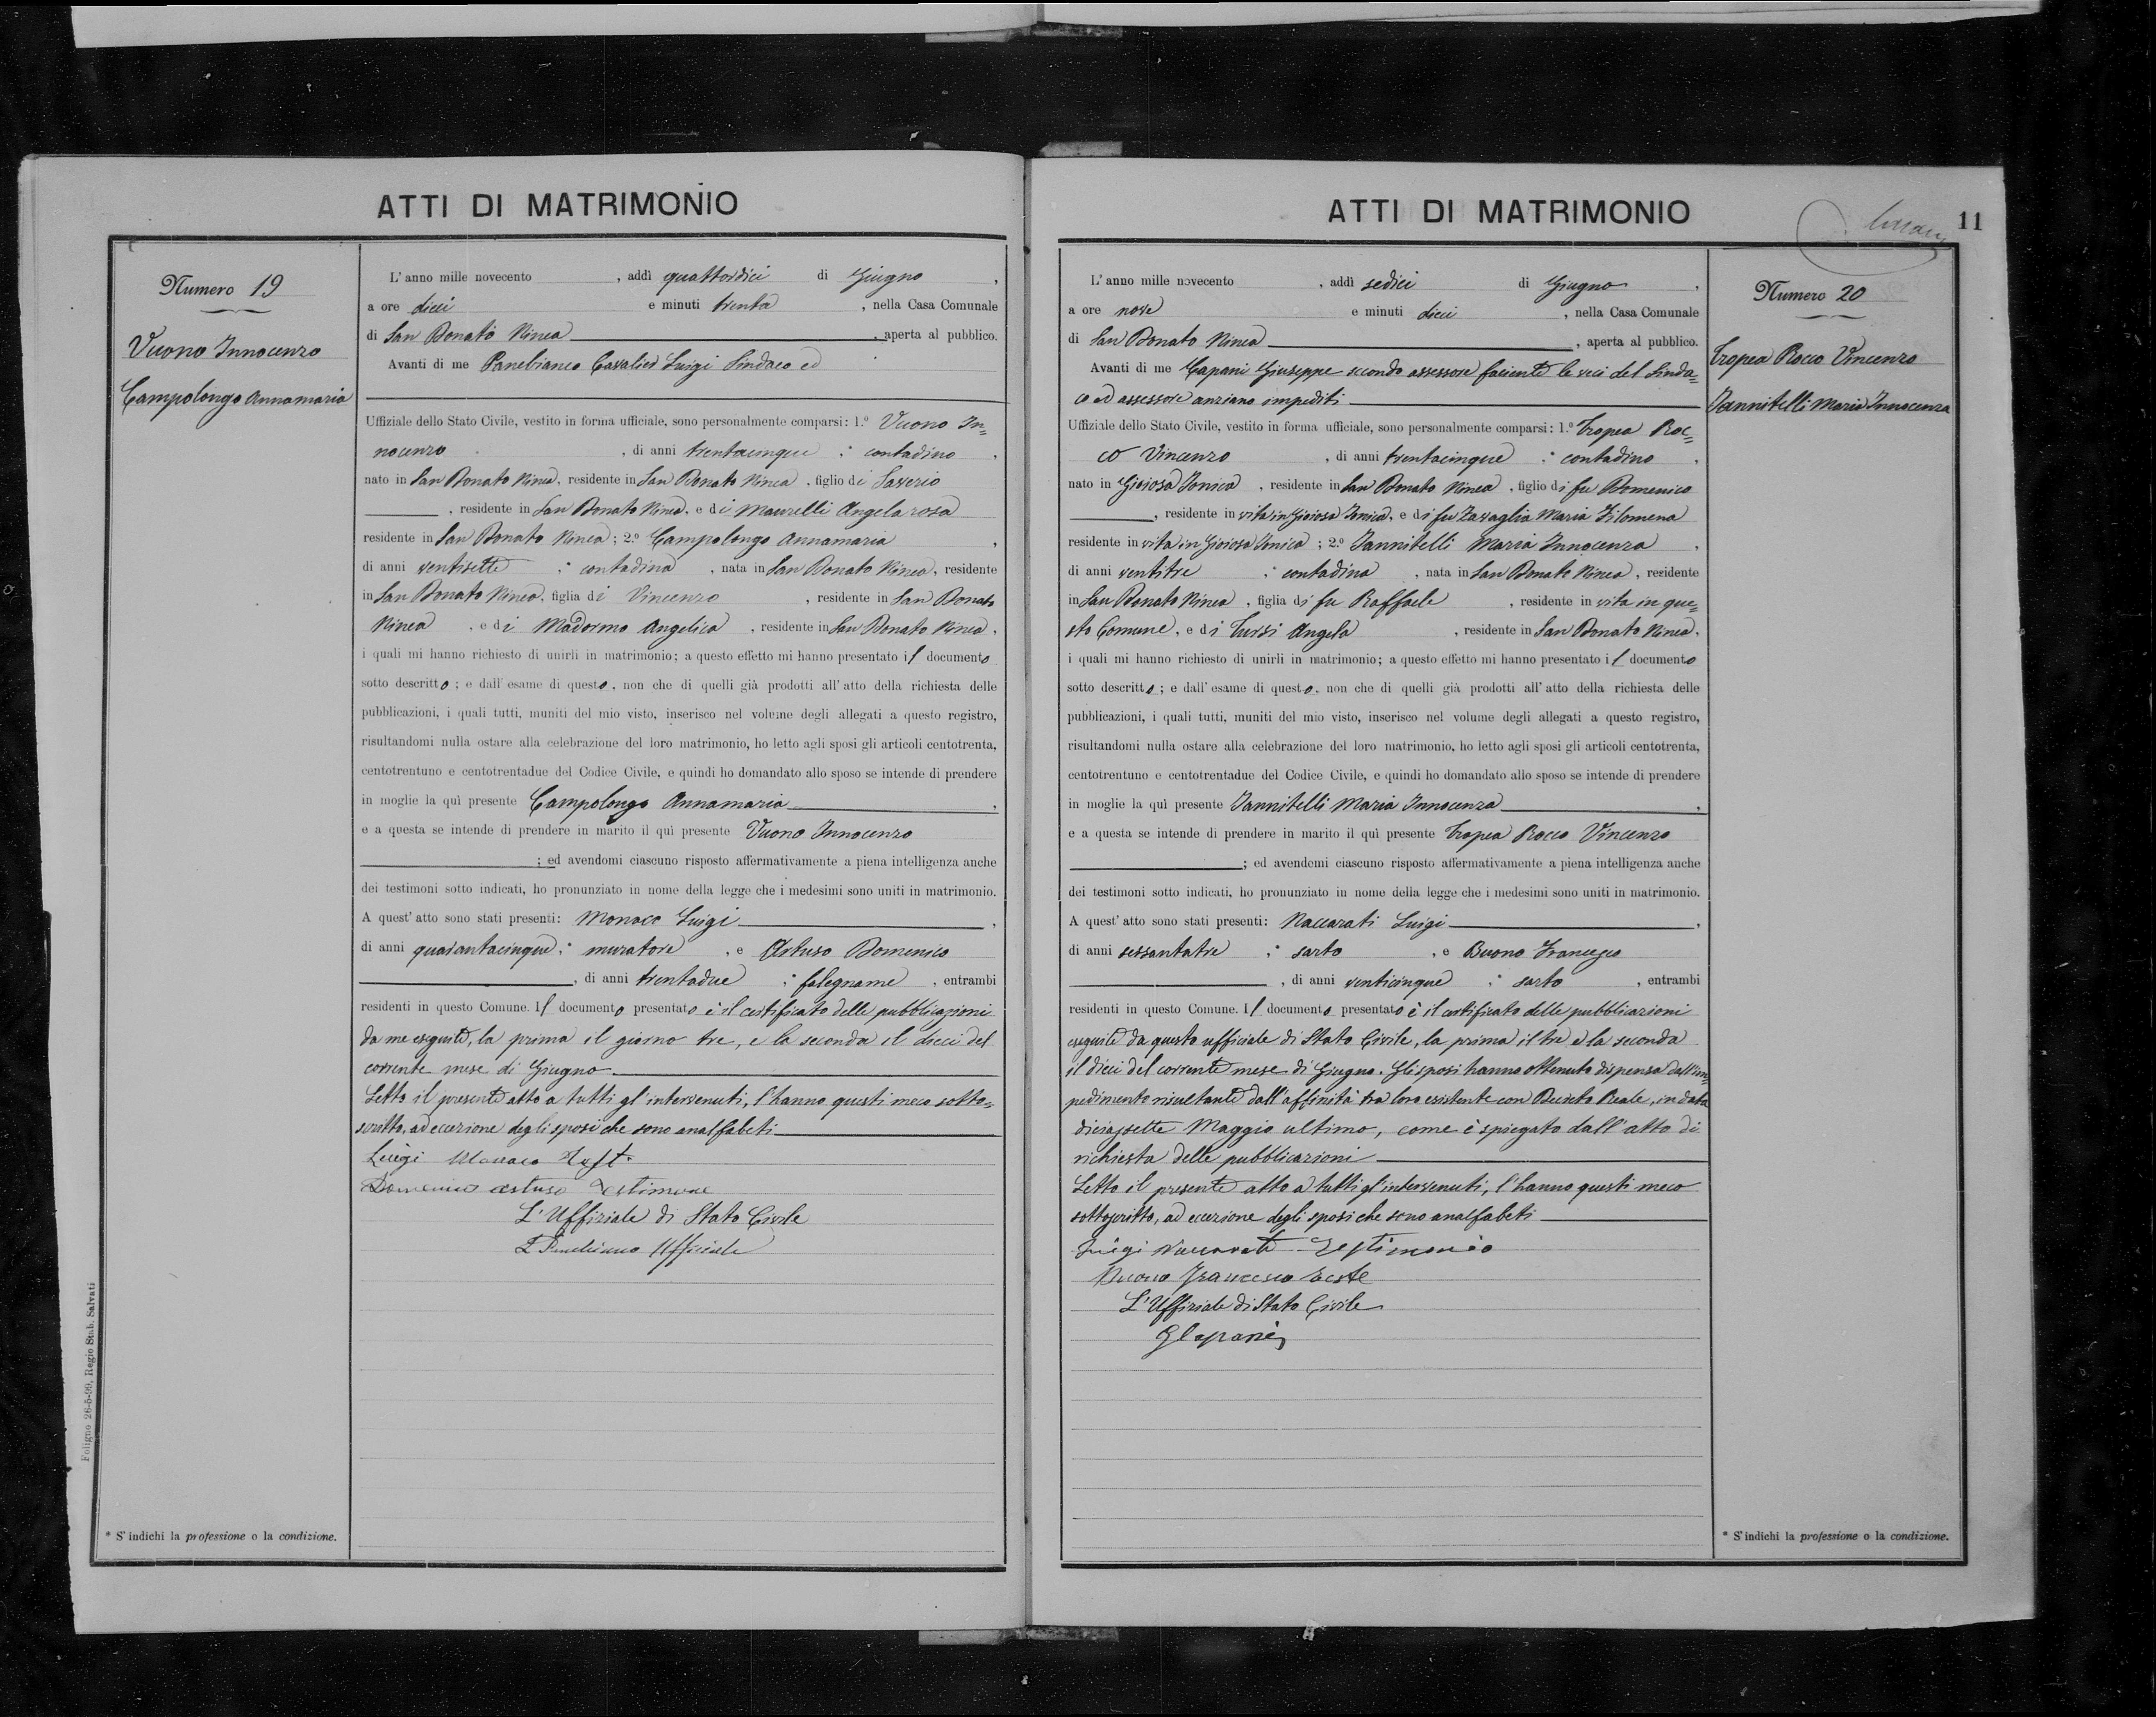 ATTI DI MATRIMONIO
Numero 19
Vuono Innocenzo
Campolongo Annamaria
L'anno mille novecento , addì quattordici di Giugno ,
a ore dieci e minuti trenta , nella Casa Comunale
di San Donato Ninea , aperta al pubblico.
Avanti di me Panebianco Cavalier Luigi Sindaco ed
Uffiziale dello Stato Civile, vestito in forma ufficiale, sono personalmente comparsi: 1.º Vuono In=
nocenzo , di anni trentacinque ; contadino ,
nato in San Donato Ninea, residente in San Donato Ninea , figlio di Saverio
, residente in San Donato Ninea, e di Maurelli Angelarosa
residente in San Donato Ninea ; 2.º Campolongo Annamaria ,
di anni ventisette : contadina , nata in San Donato Ninea, residente
in San Donato Ninea, figlia di Vincenzo , residente in San Donato
Ninea , e di Madormo Angelica , residente in San Donato Ninea,
i quali mi hanno richiesto di unirli in matrimonio; a questo effetto mi hanno presentato il documento
sotto descritto ; e dall'esame di questo, non che di quelli già prodotti all'atto della richiesta delle
pubblicazioni, i quali tutti, muniti del mio visto, inserisco nel volume degli allegati a questo registro,
risultandomi nulla ostare alla celebrazione del loro matrimonio, ho letto agli sposi gli articoli centotrenta,
centotrentuno e centotrentadue del Codice Civile, e quindi ho domandato allo sposo se intende di prendere
in moglie la quì presente Campolongo Annamaria ,
e a questa se intende di prendere in marito il quì presente Vuono Innocenzo
; ed avendomi ciascuno risposto affermativamente a piena intelligenza anche
dei testimoni sotto indicati, ho pronunziato in nome della legge che i medesimi sono uniti in matrimonio.
A quest'atto sono stati presenti: Monaco Luigi ,
di anni quarantacinque ; muratore , e Artuso Domenico
, di anni trentadue ; falegname , entrambi
residenti in questo Comune. Il documento presentato è il certificato delle pubblicazioni
da me eseguite, la prima il giorno tre, e la seconda il dieci del
corrente mese di Giugno
Letto il presente atto a tutti gl'intervenuti, l'hanno questi meco sotto=
scritto, ad eccezione degli sposi che sono analfabeti
Luigi Monaco Test.
Domenico Artuso Testimone
L'Uffiziale di Stato Civile
L Panebianco Ufficiale
* S'indichi la professione o la condizione.
Foligno 26-5-99, Regio Stab. Salvati
ATTI DI MATRIMONIO
11
L'anno mille novecento , addì sedici di Giugno ,
a ore nove e minuti dieci , nella Casa Comunale
di San Donato Ninea , aperta al pubblico.
Avanti di me Capani Giuseppe secondo assessore facente le veci del Sinda=
co ed assessore anziano impediti
Uffiziale dello Stato Civile, vestito in forma ufficiale, sono personalmente comparsi: 1.º Tropea Roc=
co Vincenzo , di anni trentacinque : contadino ,
nato in Gioiosa Ionica , residente in San Donato Ninea , figlio di fu Domenico
, residente in vita in Gioiosa Ionica, e di fu Zavaglia Maria Filomena
residente in vita in Gioiosa Ionica ; 2.º Iannitelli Maria Innocenza ,
di anni ventitre : contadina , nata in San Donato Ninea , residente
in San Donato Ninea , figlia di fu Raffaele , residente in vita in que=
sto Comune, e di Tursi Angela , residente in San Donato Ninea,
i quali mi hanno richiesto di unirli in matrimonio; a questo effetto mi hanno presentato il documento
sotto descritto ; e dall'esame di questo, non che di quelli già prodotti all'atto della richiesta delle
pubblicazioni, i quali tutti, muniti del mio visto, inserisco nel volume degli allegati a questo registro,
risultandomi nulla ostare alla celebrazione del loro matrimonio, ho letto agli sposi gli articoli centotrenta,
centotrentuno e centotrentadue del Codice Civile, e quindi ho domandato allo sposo se intende di prendere
in moglie la quì presente Iannitelli Maria Innocenza ,
e a questa se intende di prendere in marito il quì presente Tropea Rocco Vincenzo
; ed avendomi ciascuno risposto affermativamente a piena intelligenza anche
dei testimoni sotto indicati, ho pronunziato in nome della legge che i medesimi sono uniti in matrimonio.
A quest'atto sono stati presenti: Naccarati Luigi ,
di anni sessantatre : sarto , e Buono Francesco
, di anni venticinque : sarto , entrambi
residenti in questo Comune. Il documento presentato è il certificato delle pubblicazioni
eseguite da questo ufficiale di Stato Civile, la prima il tre e la seconda
il dieci del corrente mese di Giugno. Gli sposi hanno ottenuto dispensa dall'im=
pedimento risultante dall'affinità tra loro esistente con Decreto Reale, in data
diciassette Maggio ultimo, come è spiegato dall'atto di
richiesta delle pubblicazioni
Letto il presente atto a tutti gl'intervenuti, l'hanno questi meco
sottoscritto, ad eccezione degli sposi che sono analfabeti
Luigi Naccarati Testimonio
Buono Francesco Teste
L'Uffiziale di Stato Civile
G Capani
Numero 20
Tropea Rocco Vincenzo
Iannitelli Maria Innocenza
* S'indichi la professione o la condizione.